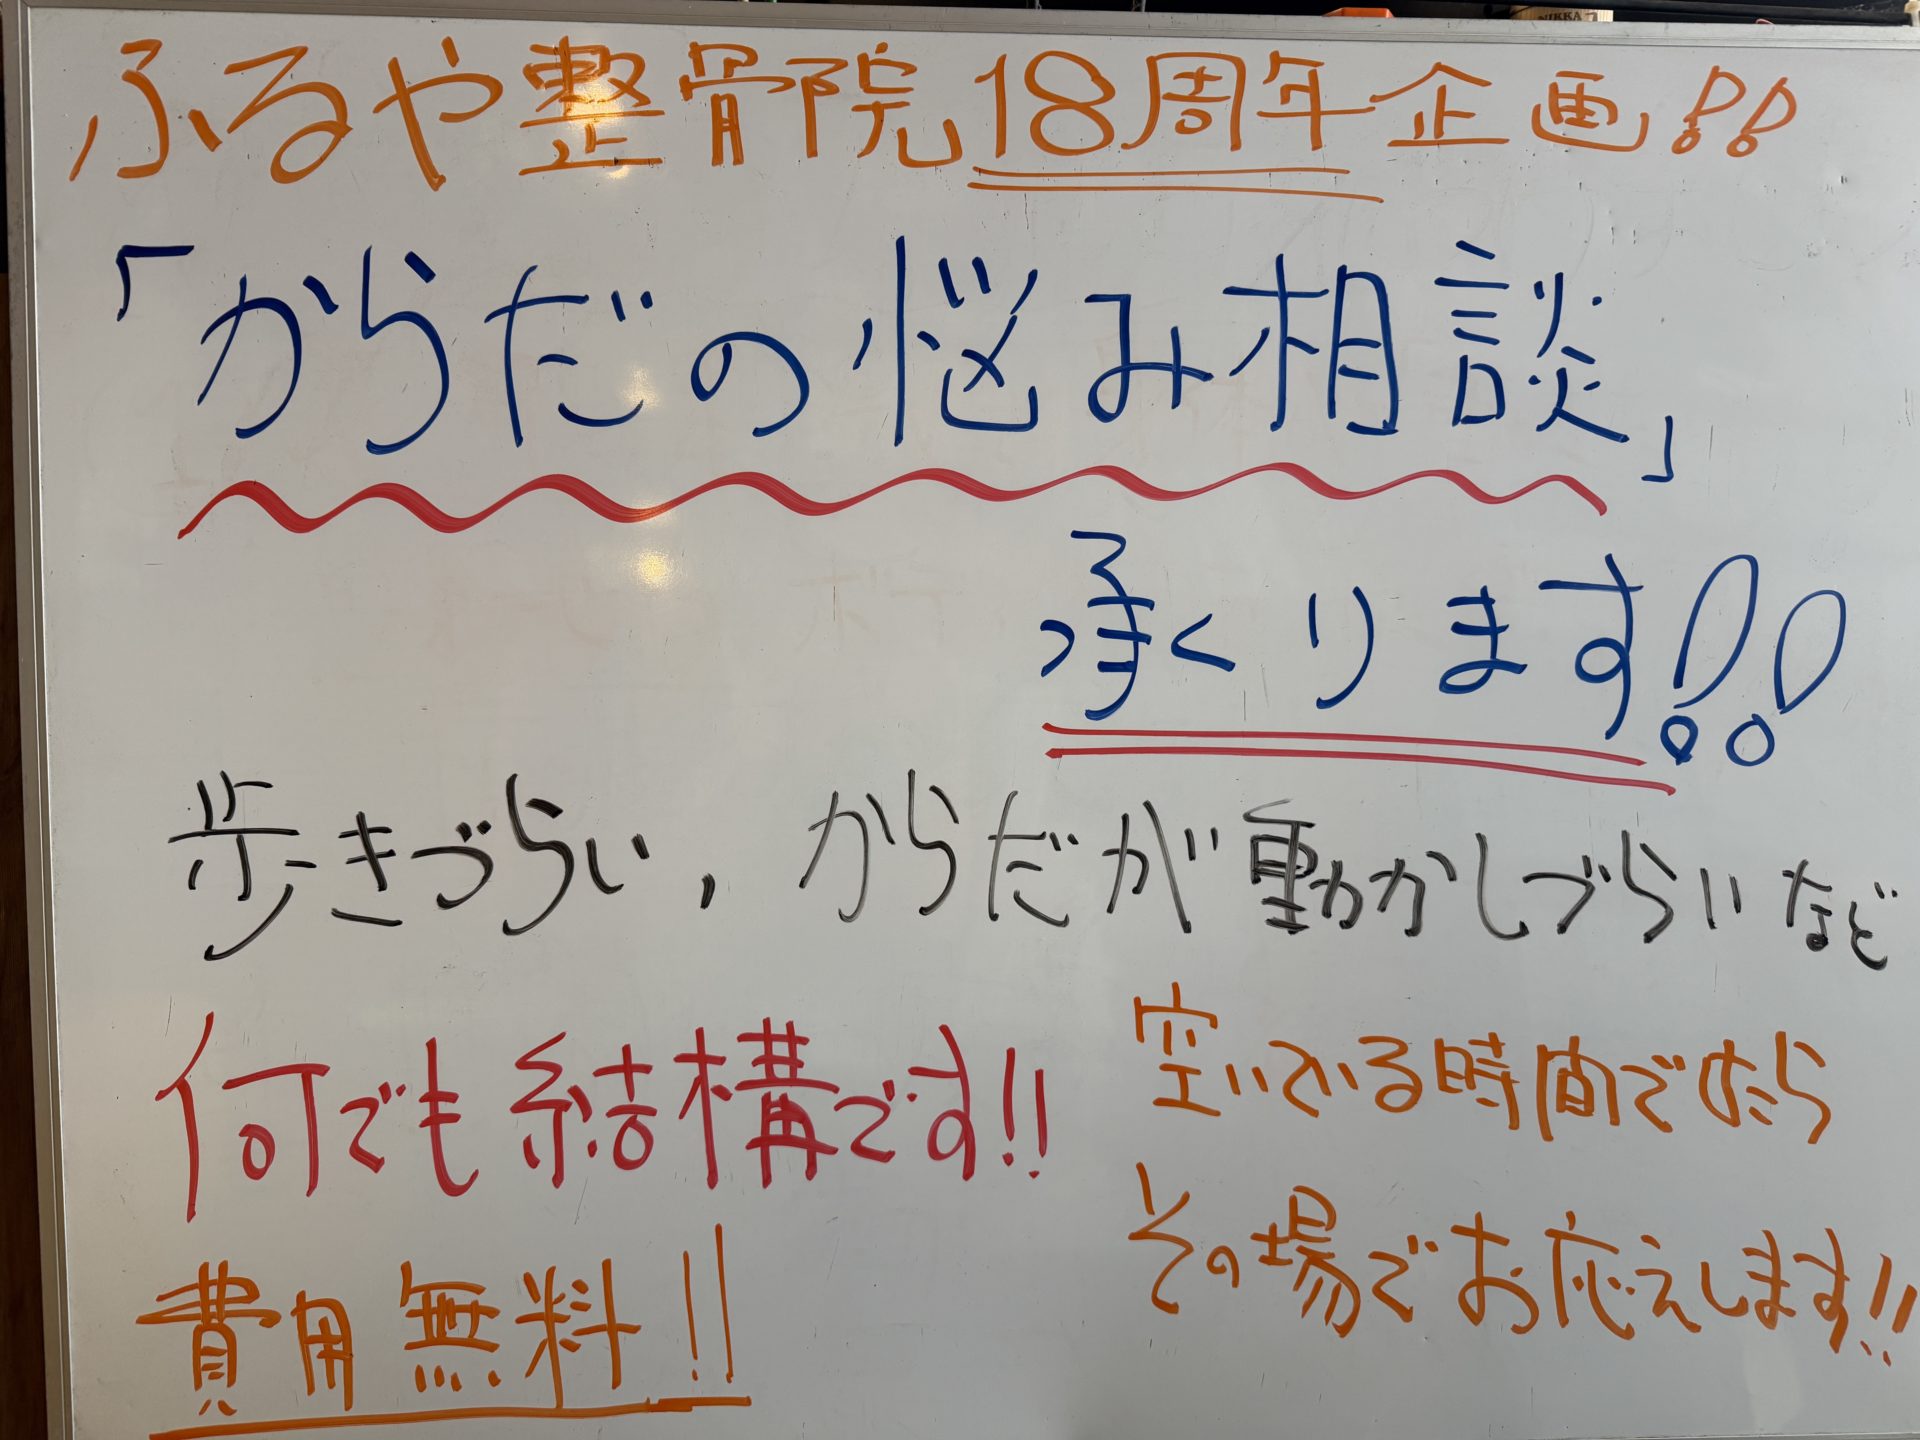 ふるや整骨院18周年企画!!
「からだの悩み相談」
承くります!!
歩きづらい、からだが動かしづらいなど
何でも結構です!!
空いている時間でしたら
その場でお応えします!!
費用無料!!
NIKKA